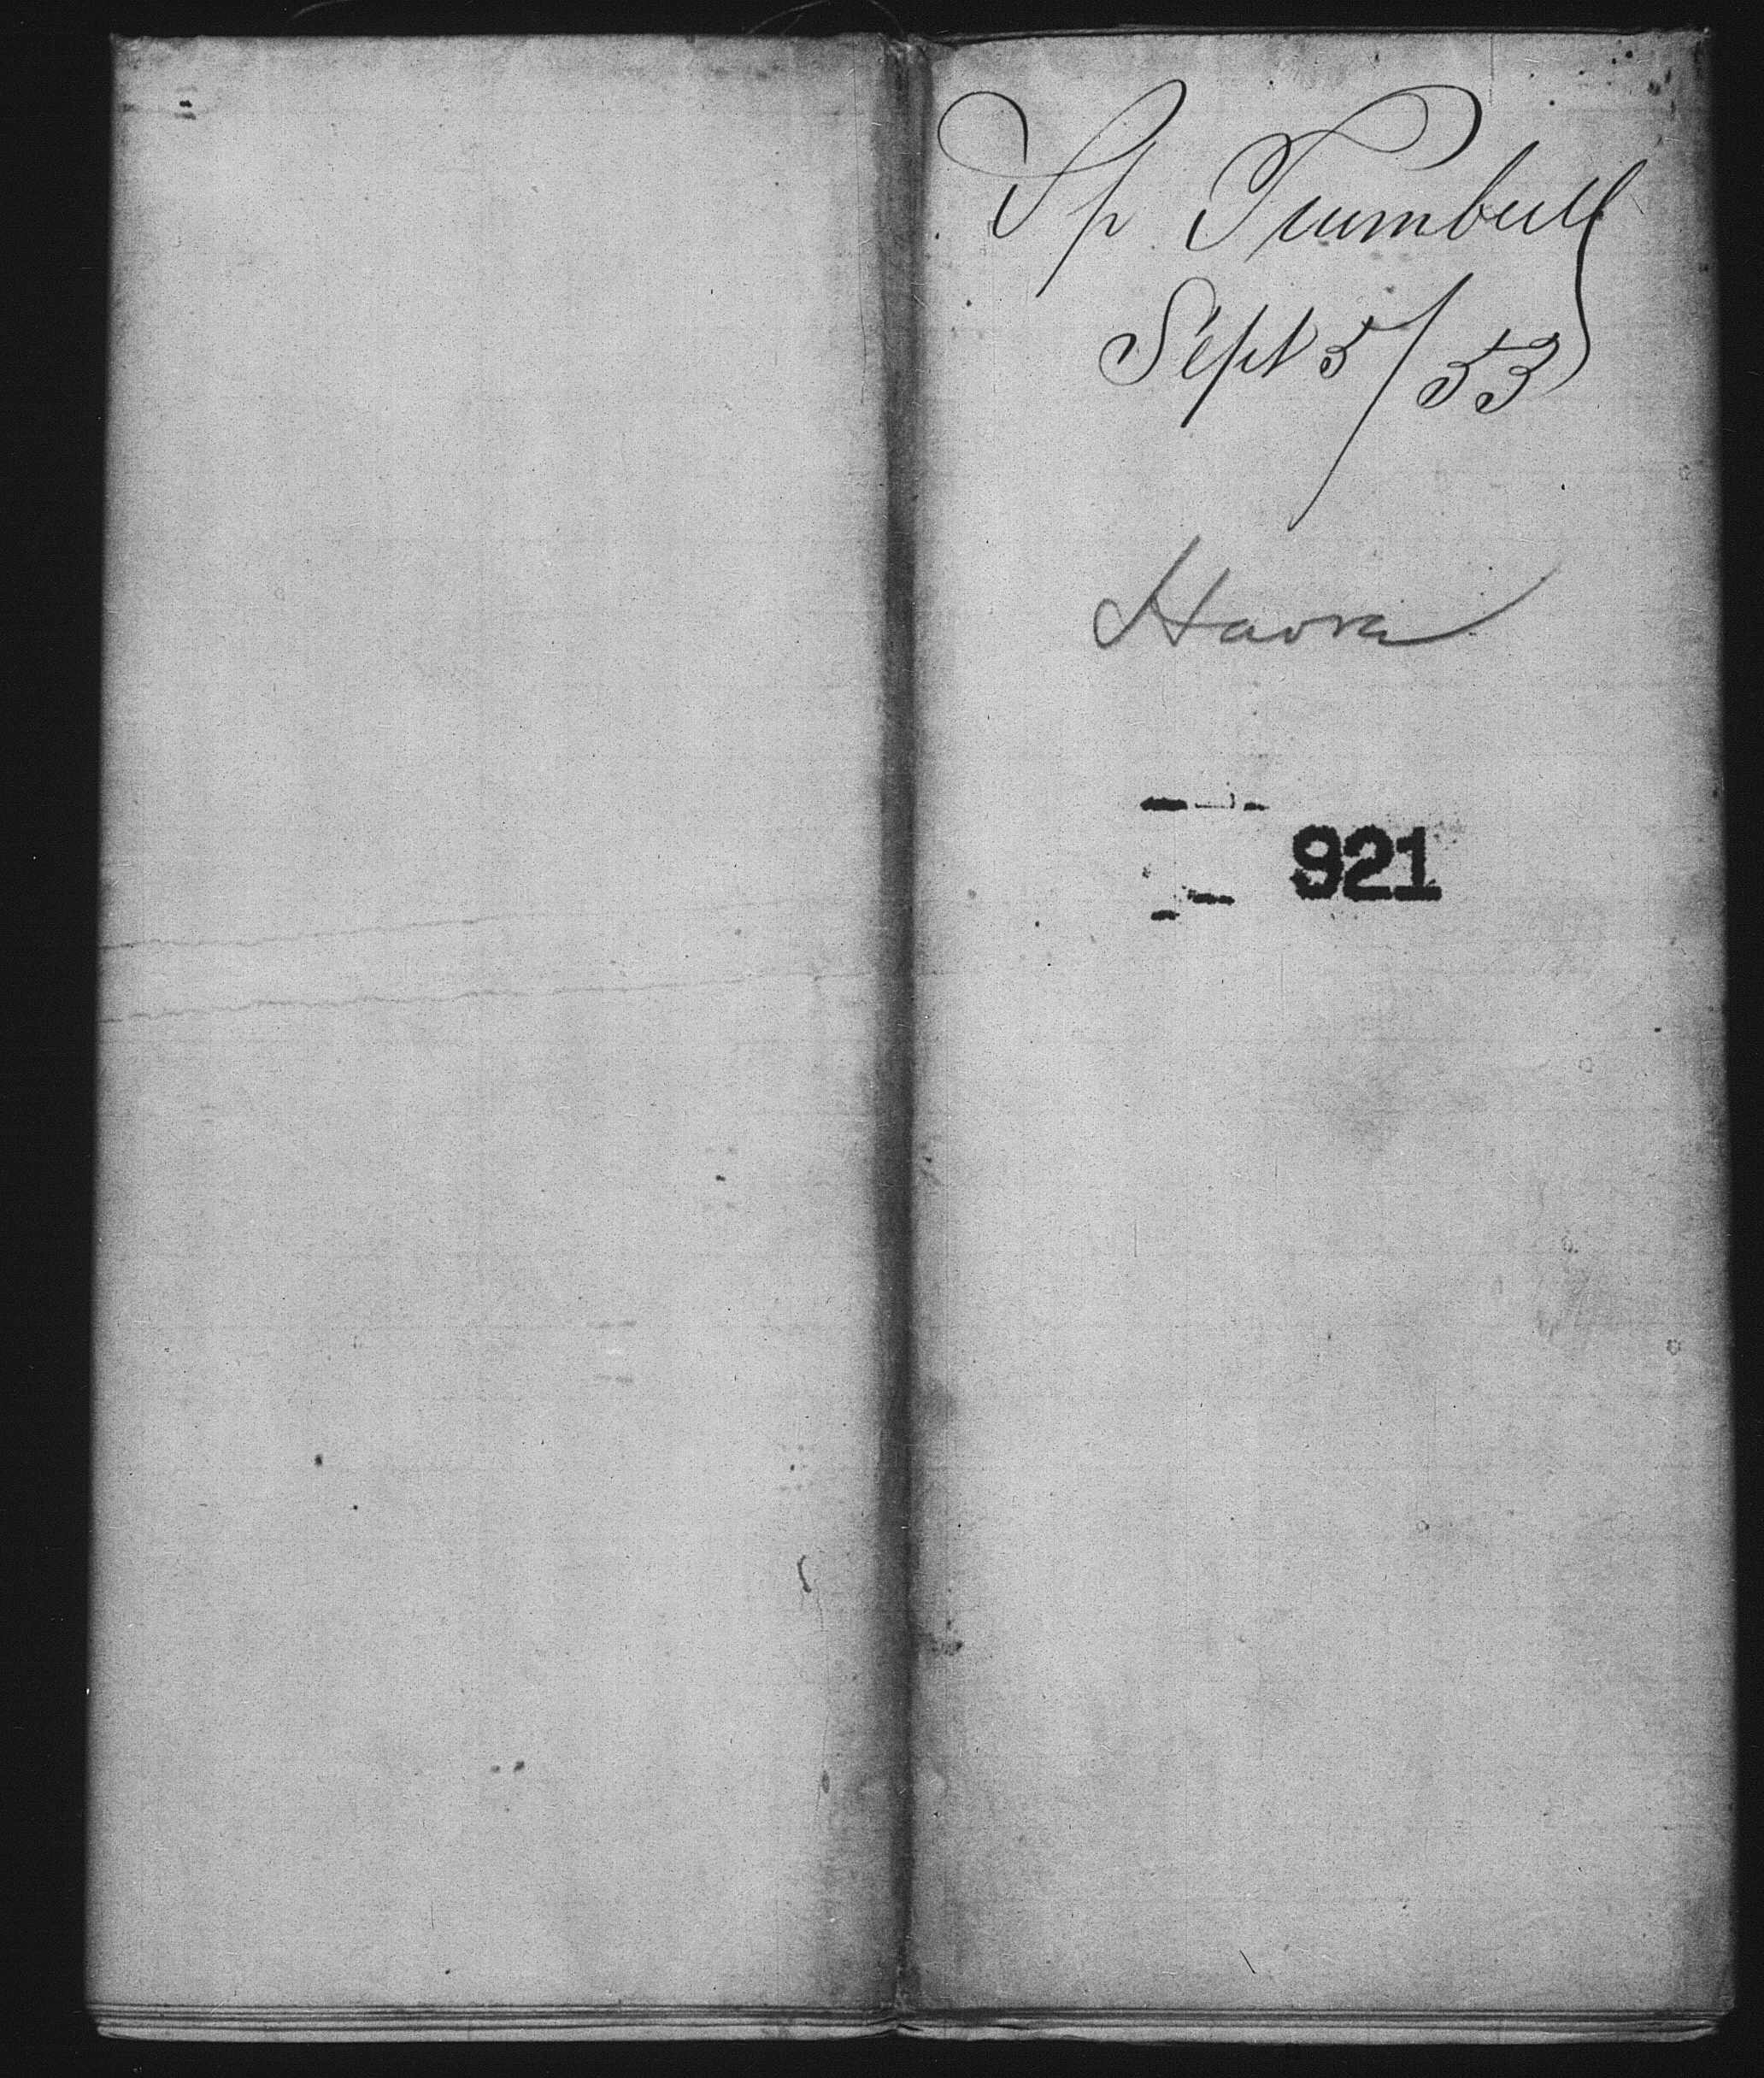 Sp Trumbull
Sept 5/53
Havre
921